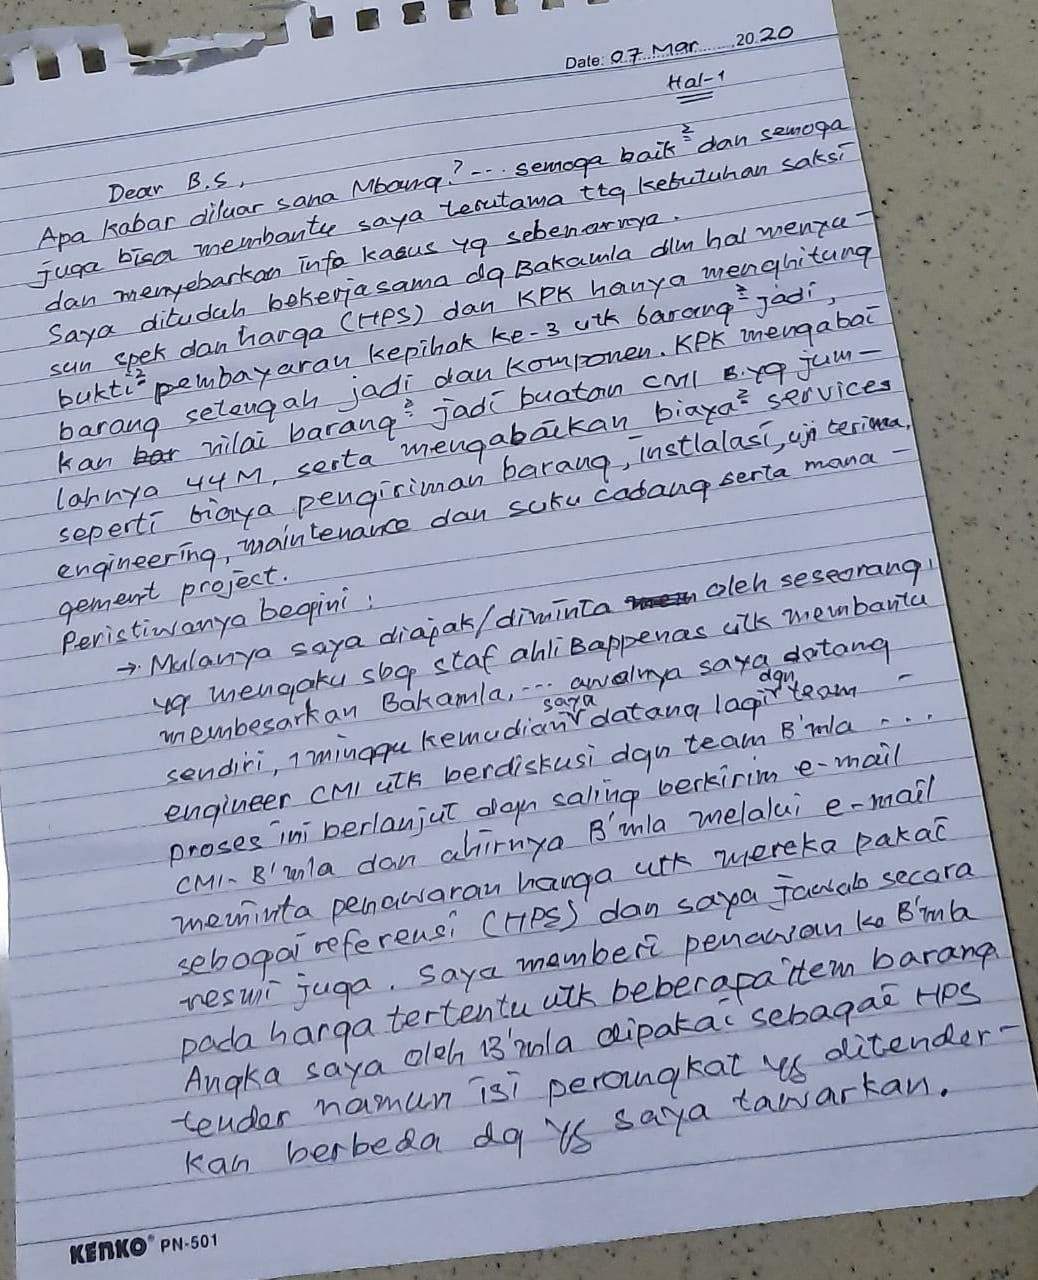 Date: 07 Mar 2020
Hal-1
Dear B.S,
Apa kabar diluar sana Mbang?... semoga baik² dan semoga
juga bisa membantu saya terutama ttg kebutuhan saksi
dan menyebarkan info kasus yg sebenarnya.
Saya dituduh bekerjasama dg Bakamla dlm hal menyu-
sun spek dan harga (HPS) dan KPK hanya menghitung
bukti² pembayaran kepihak ke-3 utk barang² jadi,
barang setengah jadi dan komponen. KPK mengabai
kan bar nilai barang² jadi buatan CMI yg jum-
lahnya 44 M, serta mengabaikan biaya² services
seperti biaya pengiriman barang, instlalasi, uji terima,
engineering, maintenance dan suku cadang serta mana-
gement project.
Peristiwanya begini:
→ Mulanya saya diajak/diminta oleh seseorang
yg mengaku sbg staf ahli Bappenas utk membantu
membesarkan Bakamla,... awalnya saya datang
sendiri, 1 minggu kemudian saya datang lagi dgn team -
engineer CMI utk berdiskusi dgn team B'mla ...
proses ini berlanjut dgn saling berkirim e-mail
CMI - B'mla dan ahirnya B'mla melalui e-mail
meminta penawaran harga utk mereka pakai
sebagai referensi (HPS) dan saya jawab secara
resmi juga. Saya memberi penawran ke B'mla
pada harga tertentu utk beberapa item barang
Angka saya oleh B'mla dipakai sebagai HPS
tender namun isi perangkat yg ditender-
kan berbeda dg yg saya tawarkan.
KENKO® PN-501